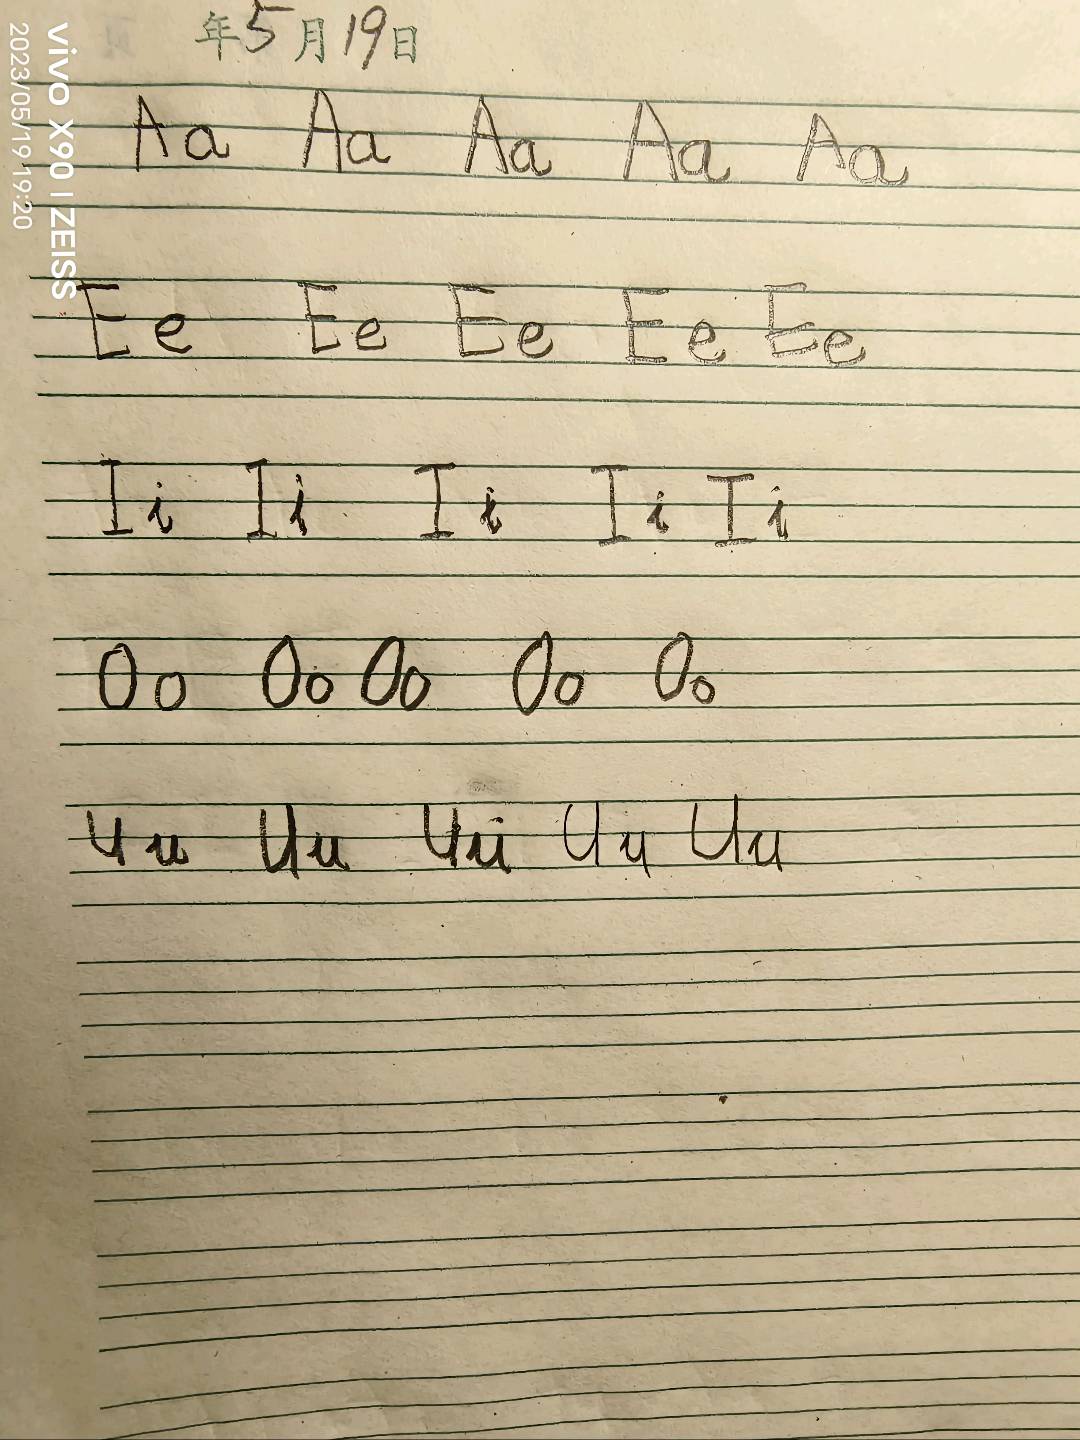 年5月19日
Aa Aa Aa Aa Aa
Ee Ee Ee Ee Ee
Ii Ii Ii Ii Ii
Oo Oo Oo Oo Oo
Uu Uu Uu Uu Uu
vivo X90 | ZEISS
2023/05/19 19:20